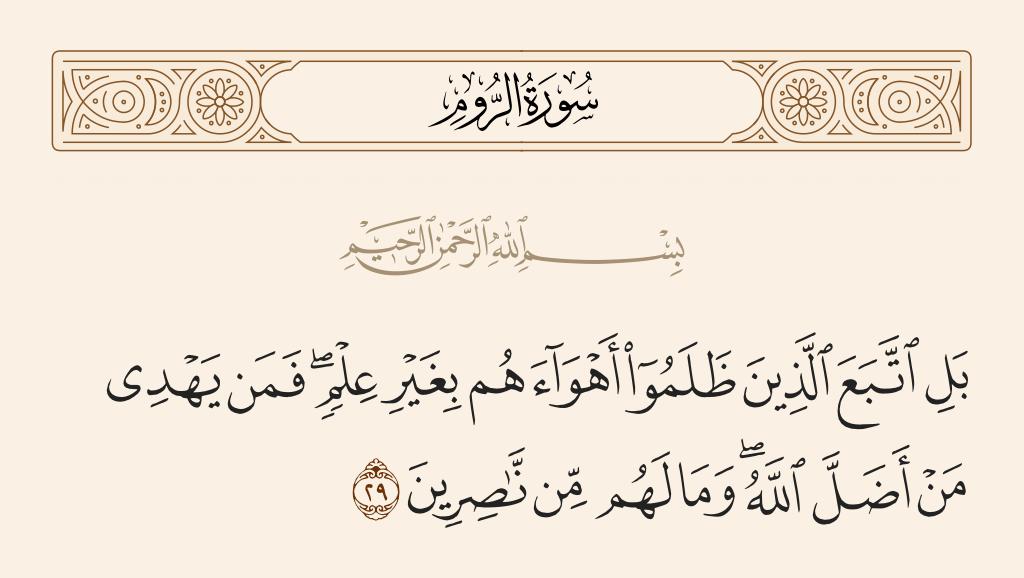 سُورَةُ الرُّومِ
بِسْمِ ٱللَّهِ ٱلرَّحْمَٰنِ ٱلرَّحِيمِ
بَلِ ٱتَّبَعَ ٱلَّذِينَ ظَلَمُوٓا۟ أَهْوَآءَهُم بِغَيْرِ عِلْمٍۢ ۖ فَمَن يَهْدِى
مَنْ أَضَلَّ ٱللَّهُ ۖ وَمَا لَهُم مِّن نَّٰصِرِينَ ٢٩